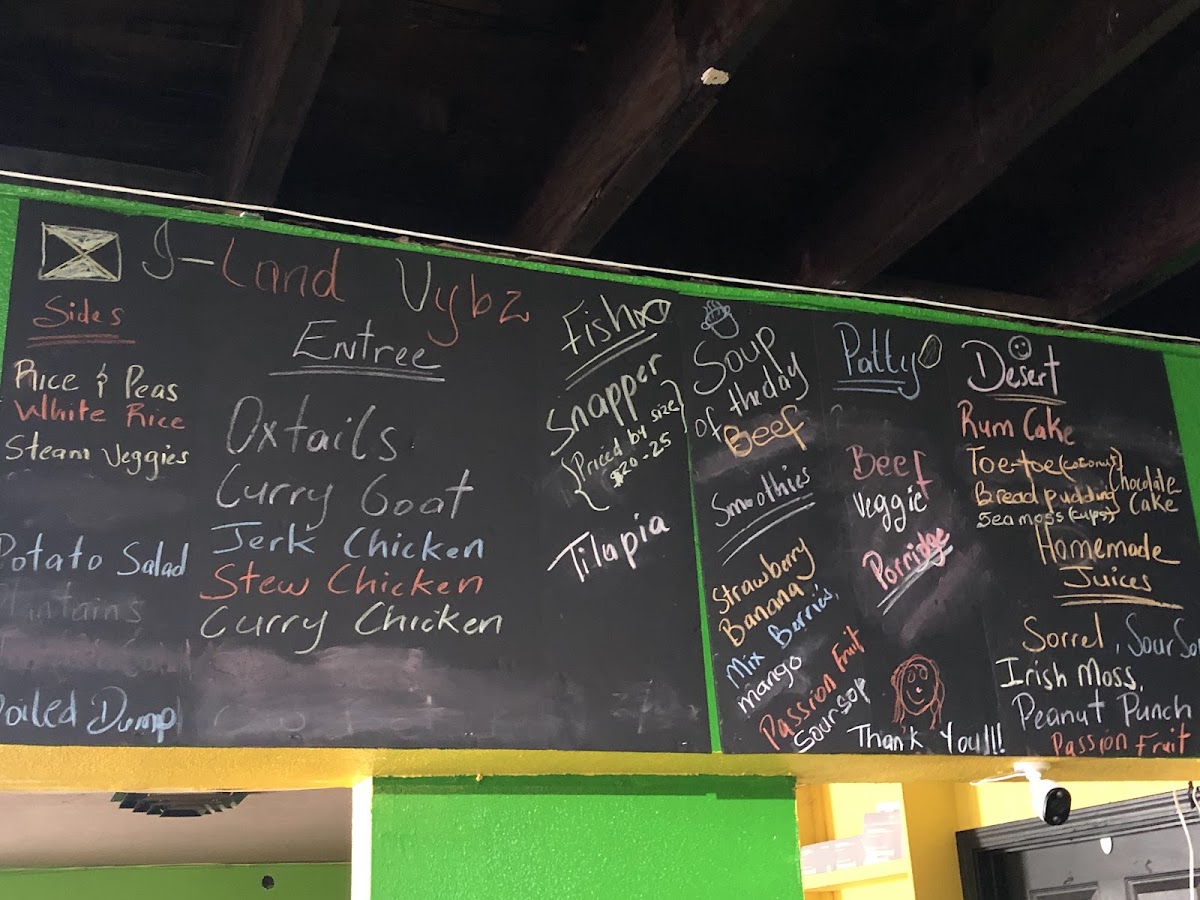 I-Land Vybz
Sides
Rice & Peas
White Rice
Steam Veggies
Potato Salad
Boiled Dump
Entree
Oxtails
Curry Goat
Jerk Chicken
Stew Chicken
Curry Chicken
Fish
Snapper
(Priced by size
$20-25)
Tilapia
Soup
of the day
Beef
Smoothies
Strawberry
Banana
Mix Berries,
mango
Passion Fruit
Soursop
Patty
Beef
Veggie
Porridge
Thank You!!!
Desert
Rum Cake
Toe-toe (coconut)
Bread pudding
Seamoss (cups)
Chocolate
Cake
Homemade
Juices
Sorrel, SourSo
Irish Moss,
Peanut Punch
Passion Fruit